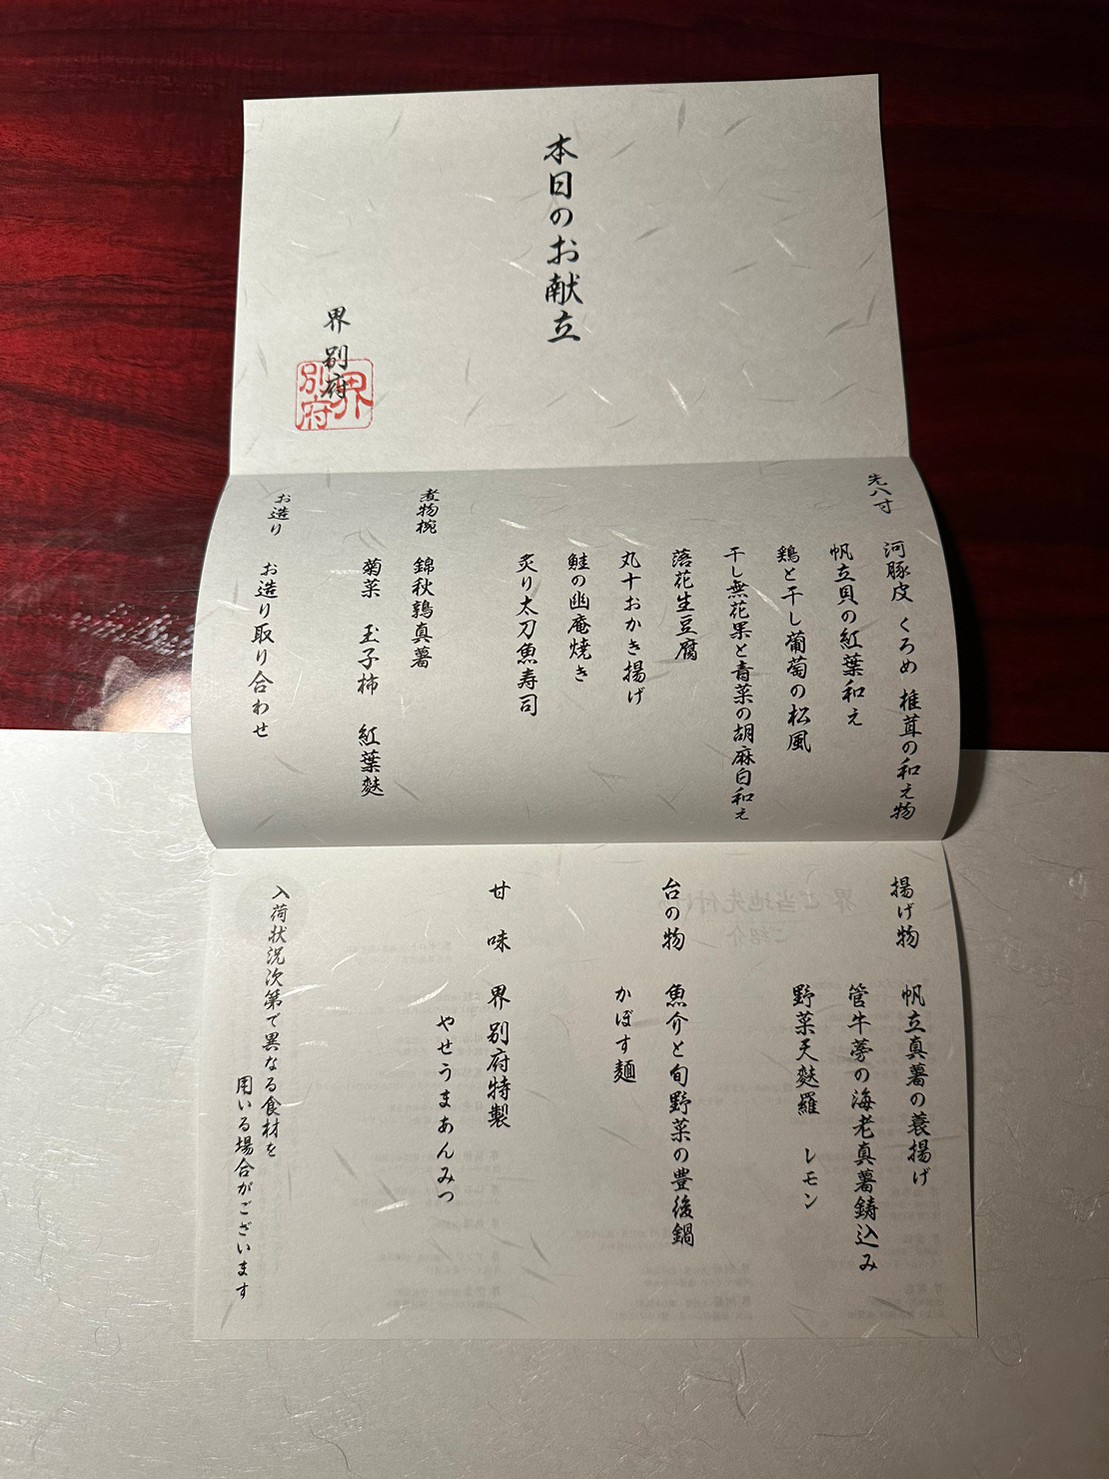 本日のお献立
界 別府
界
別府
先八寸
河豚皮 くろめ 椎茸の和え物
帆立貝の紅葉和え
鶏と干し葡萄の松風
干し無花果と青菜の胡麻白和え
落花生豆腐
丸十おかき揚げ
鮭の幽庵焼き
炙り太刀魚寿司
煮物椀 錦秋鶉真薯
菊菜 玉子柿 紅葉麩
お造り お造り取り合わせ
揚げ物 帆立真薯の蓑揚げ
管牛蒡の海老真薯鋳込み
野菜天麩羅 レモン
台の物 魚介と旬野菜の豊後鍋
かぼす麺
甘味 界 別府特製
やせうまあんみつ
入荷状況次第で異なる食材を
用いる場合がございます
界 ご当地先付け
ご紹介